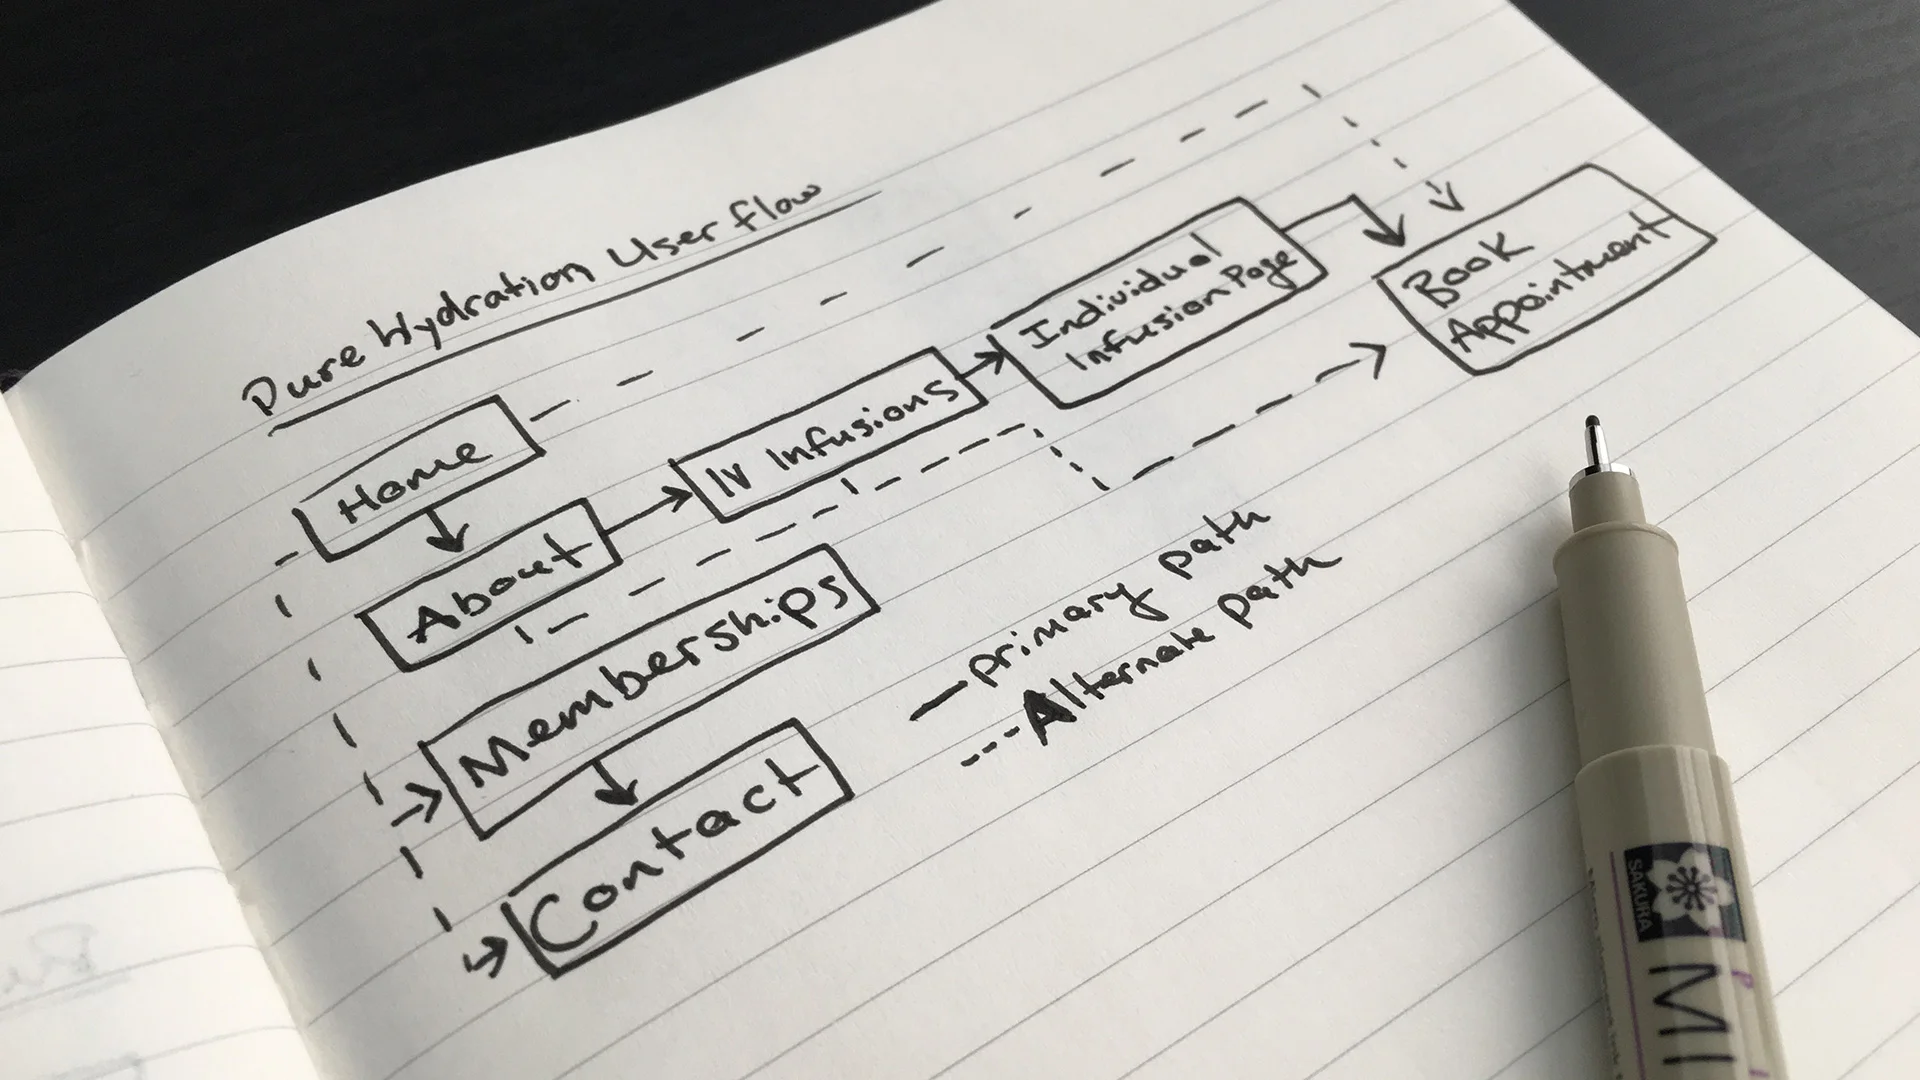 Pure Hydration User flow
Home
About
IV Infusions
Individual
Infusion Page
Book
Appointment
Memberships
Contact
primary path
Alternate path
SAKURA
MI